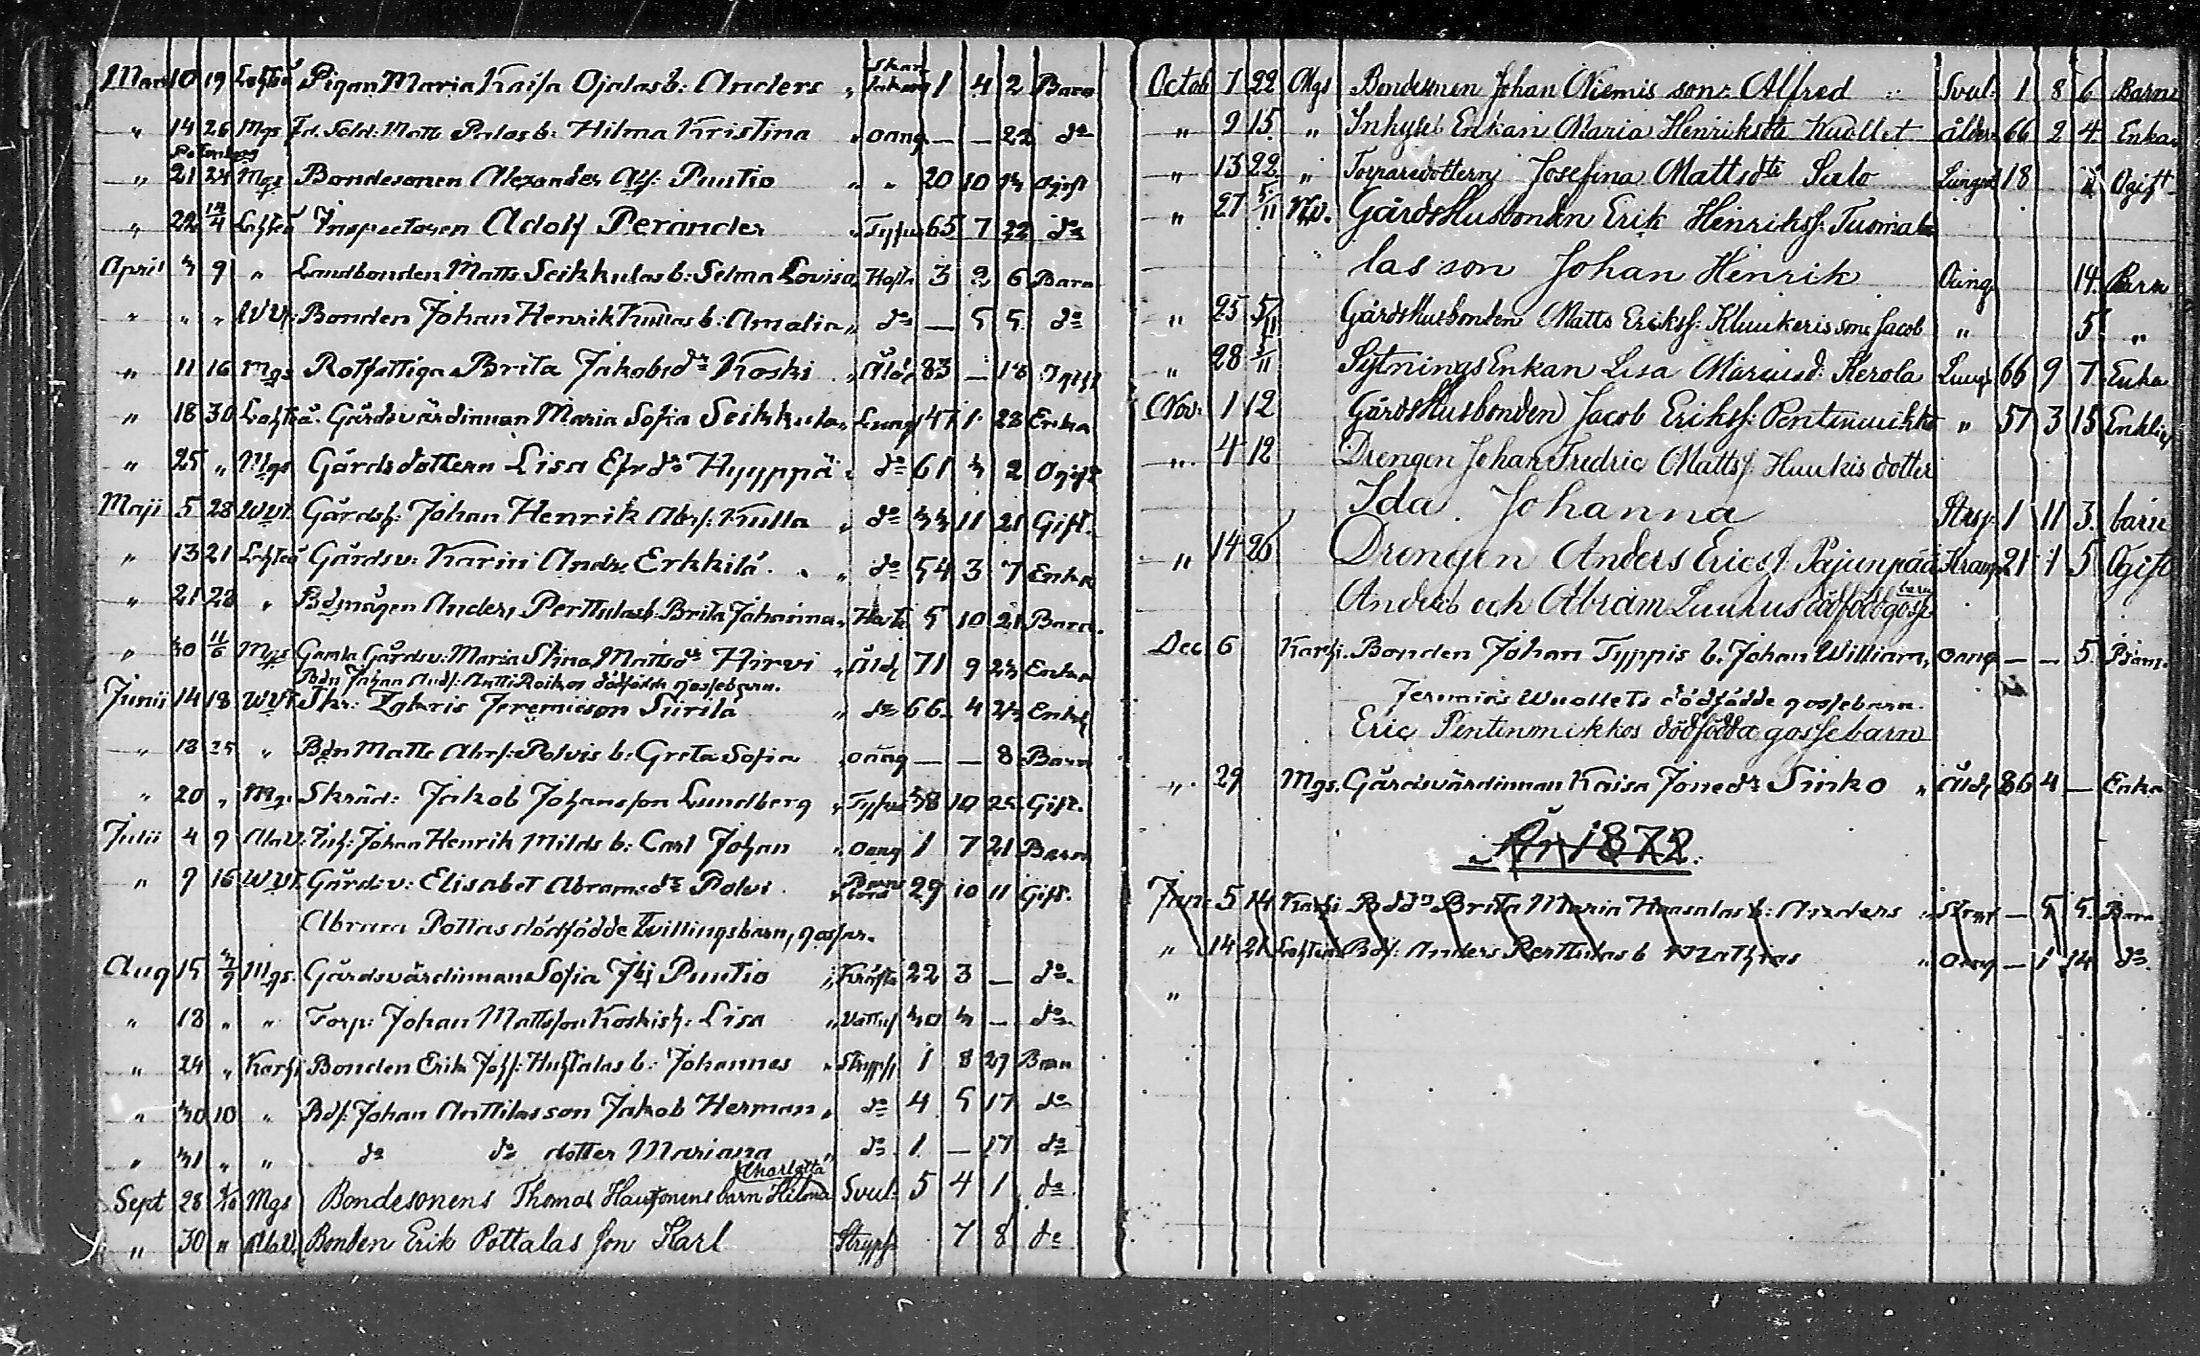 Mars 10 19 Lohteå Pigan Maria Kaisa Ojalas b: Anders " Skarlakans 1 4 2 Barn
" 14 26 Mgs Fd. Sold: Matts Palas b: Hilma Kristina " oang — — 22 do
" 21 24 Mgs Bondesonen Alexander Puutio " " 20 10 Ogift
" 22 Lohteå Inspectoren Adolf Perander " Tyfus 65 7 22 do
April 4 9 " Landbonden Matts Seikkulas b: Selma Lovisa " Hosta 3 2 6 Barn
" " " WVt: Bonden Johan Henrik Kullas b: Amalia " do — 5 5 do
" 11 16 Mgs Rotfattiga Brita Jakobsdr Koski " Åld 83 — 18 Ogift
" 18 30 Lohteå Gårdsvärdinnan Maria Sofia Seikkula " Lung 47 1 23 Enka
" 25 " Mgs Gårdsdottern Lisa Efrdr Hyyppä " do 61 4 2 Ogift
Maji 5 28 WVt Gårdsh: Johan Henrik Abrs: Kulla " do 44 11 21 Gift.
" 13 21 Lohteå Gårdsv: Karin Andr: Erkkilä " do 54 3 7 Enka
" 21 28 " Bdmågen Anders Perttulas b: Brita Johanna " Hosta 5 10 21 Barn.
" 30 11/6 Mgs Gamla Gårdsv: Maria Stina Mattsdr Hirvi " Åld 71 9 24 Enka
Bdn Johan And: Antti Roikos dödfödde gossebarn.
Junii 14 18 WVt Skr: Zakris Jeremiæson Siirilä " do 66 4 24 Enkl
" 18 25 " Bdn Matts Abrs: Polvis b: Greta Sofia " oäng — — 8 Barn
" 20 " Mgs Skräd: Jakob Johansson Lundberg " Tyfus 38 10 25 Gift.
Julii 4 9 AlaV: Inh: Johan Henrik Milds b: Carl Johan " Oang 1 7 21 Barn
" 9 16 WVt Gårdsv: Elisabet Abramsdr Polvi " Barnsbörd 29 10 11 Gift.
Abram Pottas dödfödde tvillingsbarn, gossar.
Aug 15 Mgs. Gårdsvärdinnan Sofia Puutio " Kräfta 22 3 — do
" 18 " " Torp: Johan Mattsson Koskis h: Lisa " Vattus 40 4 — do
" 24 " Karhi Bonden Erik Johs: Huhtalas b: Johannes " Strypsj 1 8 27 Barn
" 30 10 " Bdf: Johan Anttilas son Jakob Herman " do 4 5 17 do
" 31 " " do do dotter Mariana " do 1 — 17 do
Charlotta
Sept 28 Mgs Bondesonens Thomas barn Hilma Svul: 5 4 1 do
" 30 " AlaV. Bonden Erik Pottalas son Karl Strypsj 7 8 do
Octob 7 22 Mgs Bondesonen Johan Niemis son: Alfred " Svul: 1 8 6 Barn
" 9 15 " Inhyses Enkan Maria Henriksdtr Kuollet ålder 66 2 4 Enka
" 13 22 " Torparedottern Josefina Mattsdtr Salo Lungs 18 Ogift
" 27 5/11 Gårdshusbonden Erik Henrikss:
las son Johan Henrik Oäng 14 Barn
" 25 5/11 Gårdshusbonden Matts Erikss: Kluukeris son: Jacob " 5 "
" 28 5/11 Sytnings Enkan Lisa Kerola Lungs 66 9 7 Enka
Nov: 1 12 Gårdshusbonden Jacob Erikss: Pentinmikko " 57 3 15 Enkling
" 4 12 Drengen Johan Fredric Mattss: Huukis dotter
Ida Johanna Strsj: 1 11 3. barn
" 14 26 Drengen Anders Ericss: Pajunpää Kramp 21 1 5 Ogift
Anders och Abram Luukus dödfödt gosse barn
Dec. 6 Karhi. Bonden Johan Typpis b. Johan William, oang — — 5. Barn.
Jeremias Wuollets dödfödde gossebarn.
Eric Pentinmikkos dödfödda gossebarn
" 29 Mgs. Gårdsvärdinnan Kaisa Jonedr Sinko " Åld 86 4 — Enka
År 1872.
Jan: 5 14 Karhi Bddn Brita Maria Haasalas b: Anders " Strypt — 5 5 Barn
" 14 21 Lohteå Bdf: Anders Perttulas b Mathias " oang — 1 14 do.
"